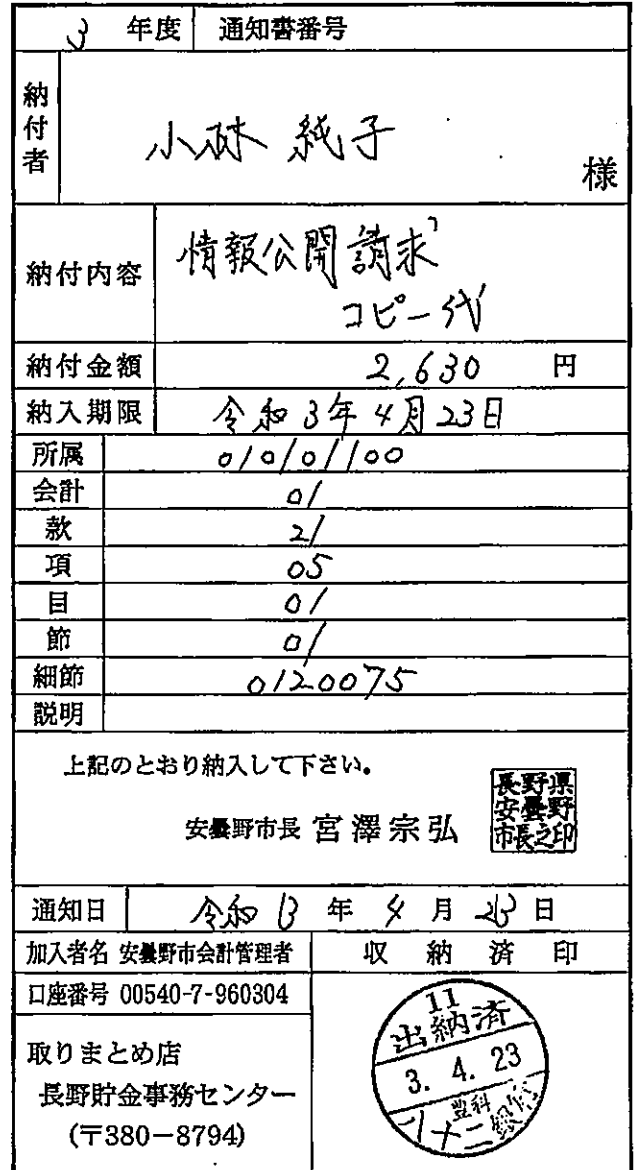 3 年度 通知書番号
納付者 小林 純子 様
納付内容 情報公開請求
コピー代
納付金額 2,630 円
納入期限 令和3年4月23日
所属 010101100
会計 01
款 21
項 05
目 01
節 01
細節 0120075
説明
上記のとおり納入して下さい。
安曇野市長 宮澤宗弘
長野県
安曇野
市長之印
通知日 令和 3 年 4 月 23 日
加入者名 安曇野市会計管理者 収納済印
口座番号 00540-7-960304
取りまとめ店
長野貯金事務センター
(〒380-8794)
11
出納済
3. 4. 23
豊科
八十二銀行